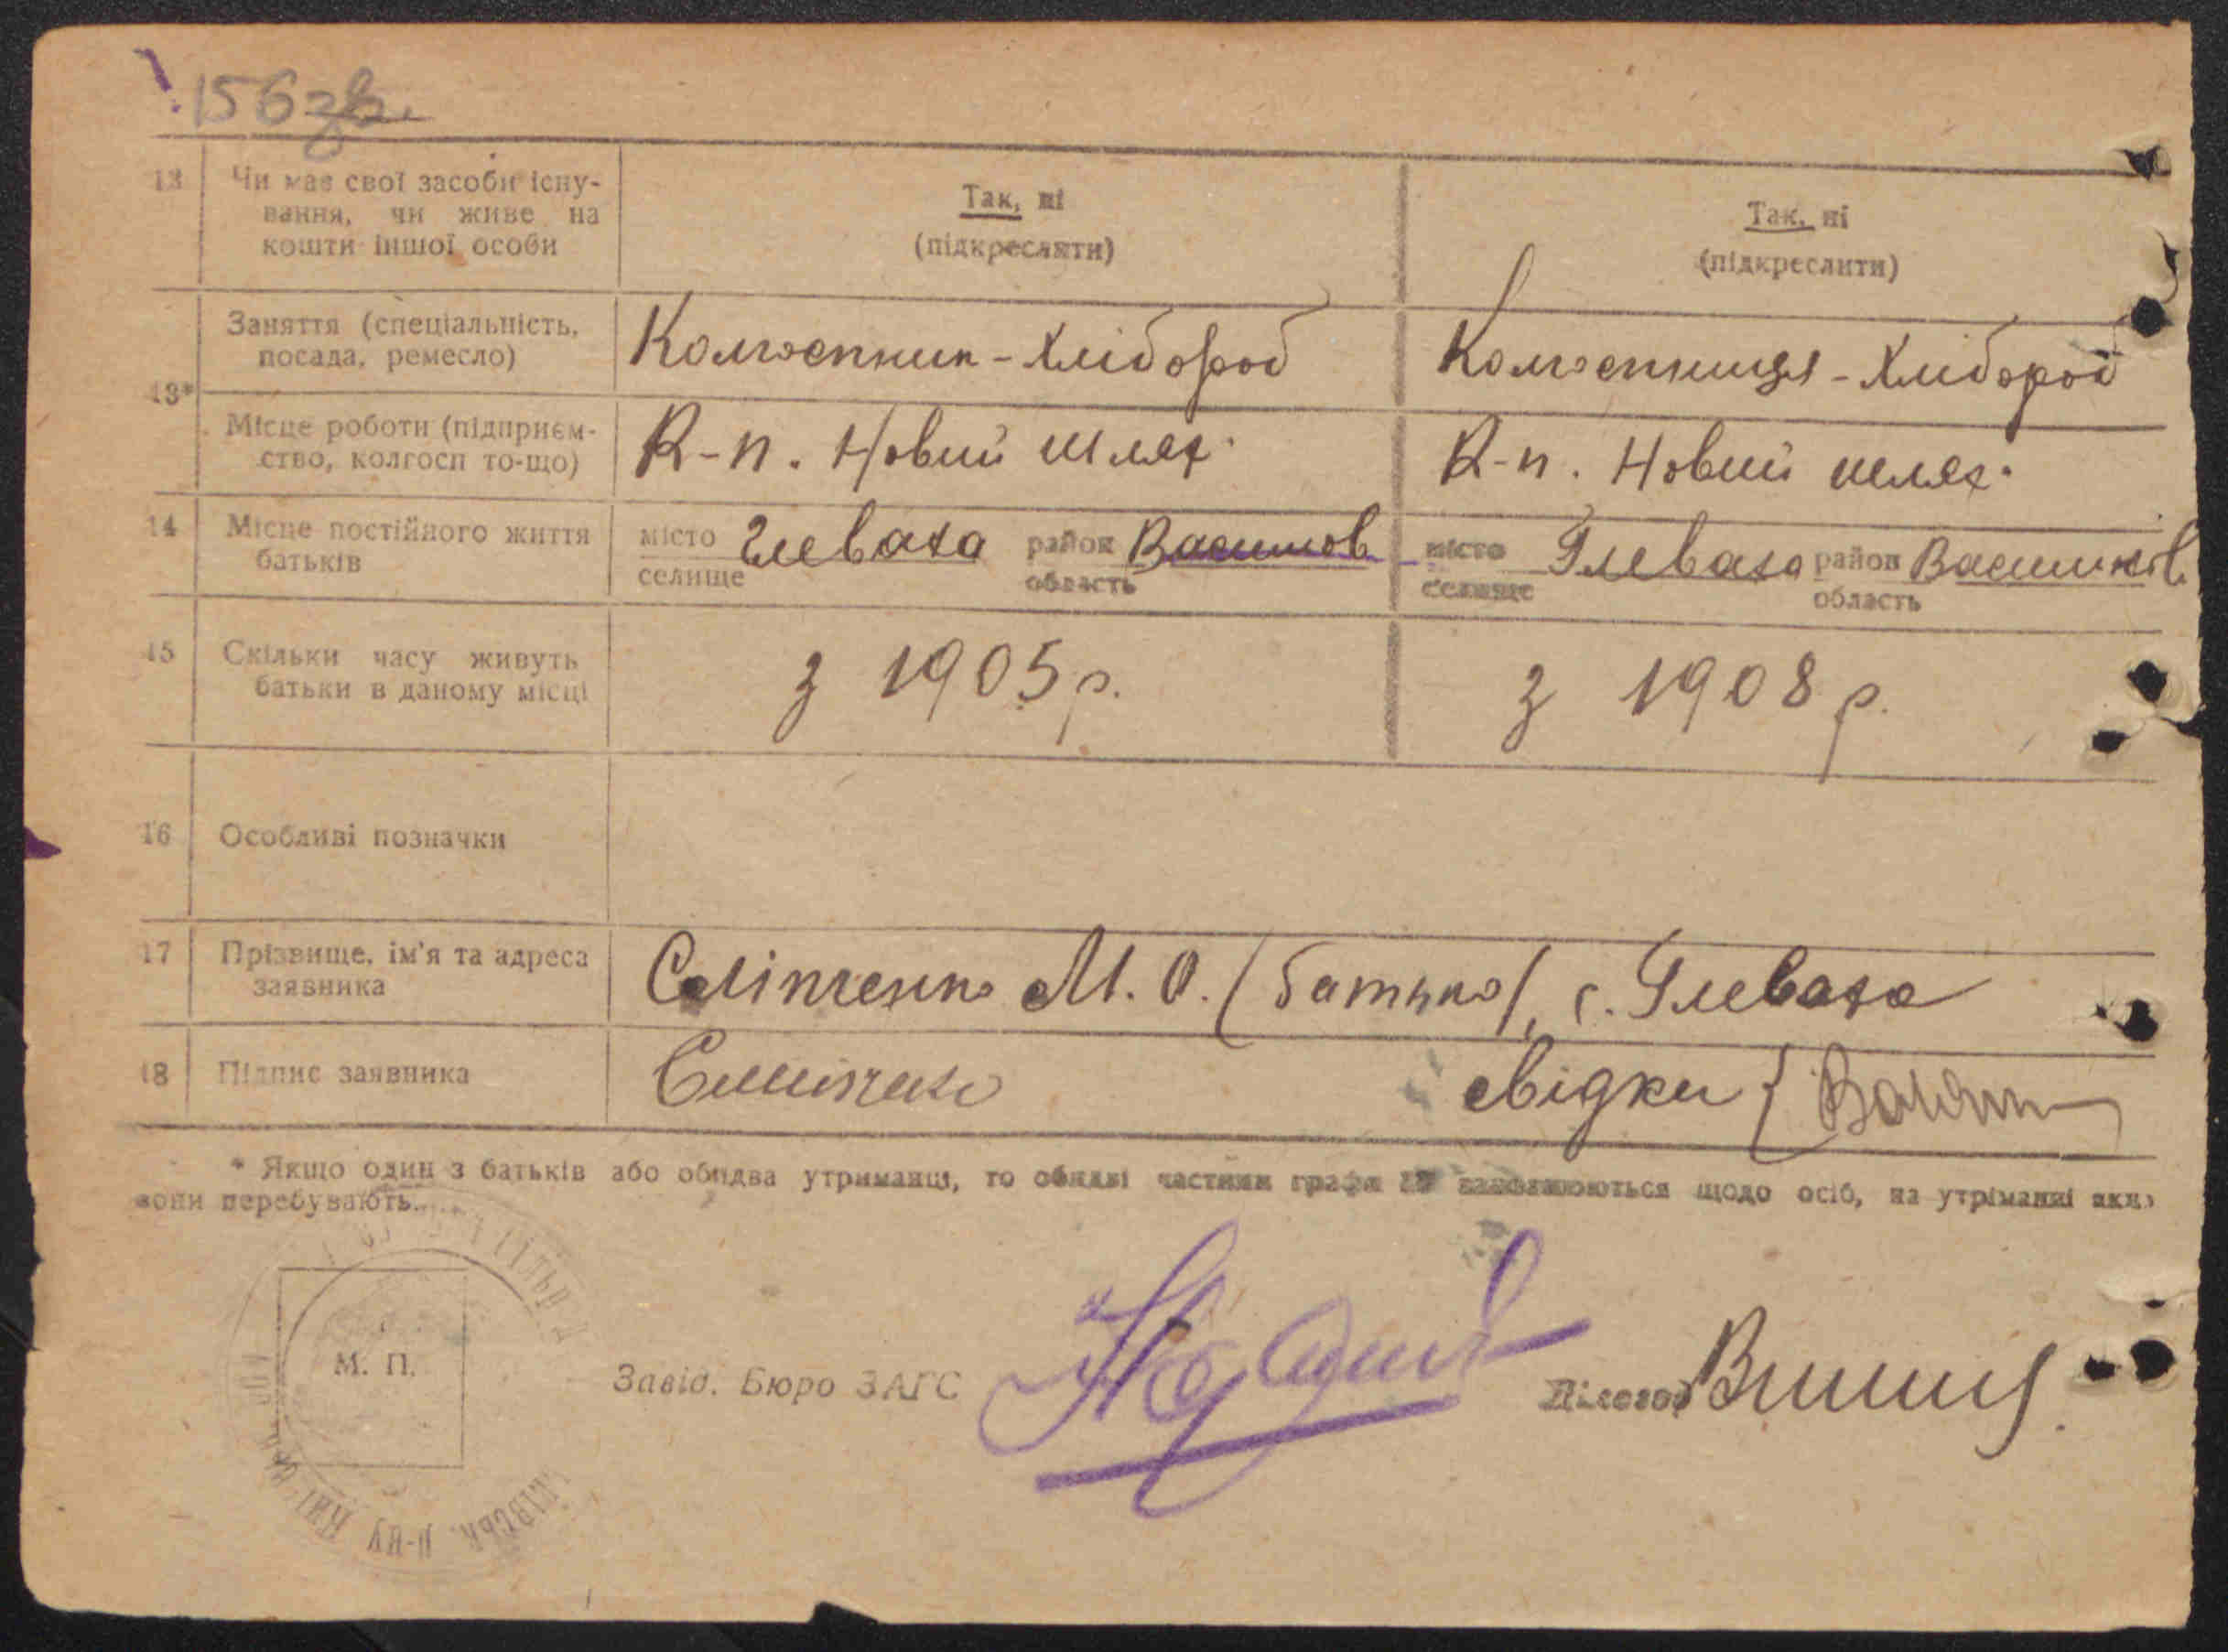 156 зв.
13 Чи має свої засоби існу-
вання, чи живе на
кошти іншої особи
Так, ні
(підкреслити)
Так, ні
(підкреслити)
13*
Заняття (спеціальність,
посада, ремесло)
Колгоспник - хлібороб
Колгоспниця - хлібороб
Місце роботи (підприєм-
ство, колгосп то-що)
К-п. Новий шлях.
К-п. Новий шлях.
14 Місце постійного життя
батьків
місто
селище
Глеваха
район
область
Васильков
місто
селище
Глеваха
район
область
Васильков
15 Скільки часу живуть
батьки в даному місці
з 1905 р.
з 1908 р.
16 Особливі позначки
17 Прізвище, ім'я та адреса
заявника
Сліпченко М. О. (батько), с. Глеваха
18 Підпис заявника
Сліпченко
свідки {
* Якщо один з батьків або обидва утриманці, то обидві частини графи 13 заповнюються щодо осіб, на утриманні яких
вони перебувають.
М. П.
Завід. Бюро ЗАГС
Діловод